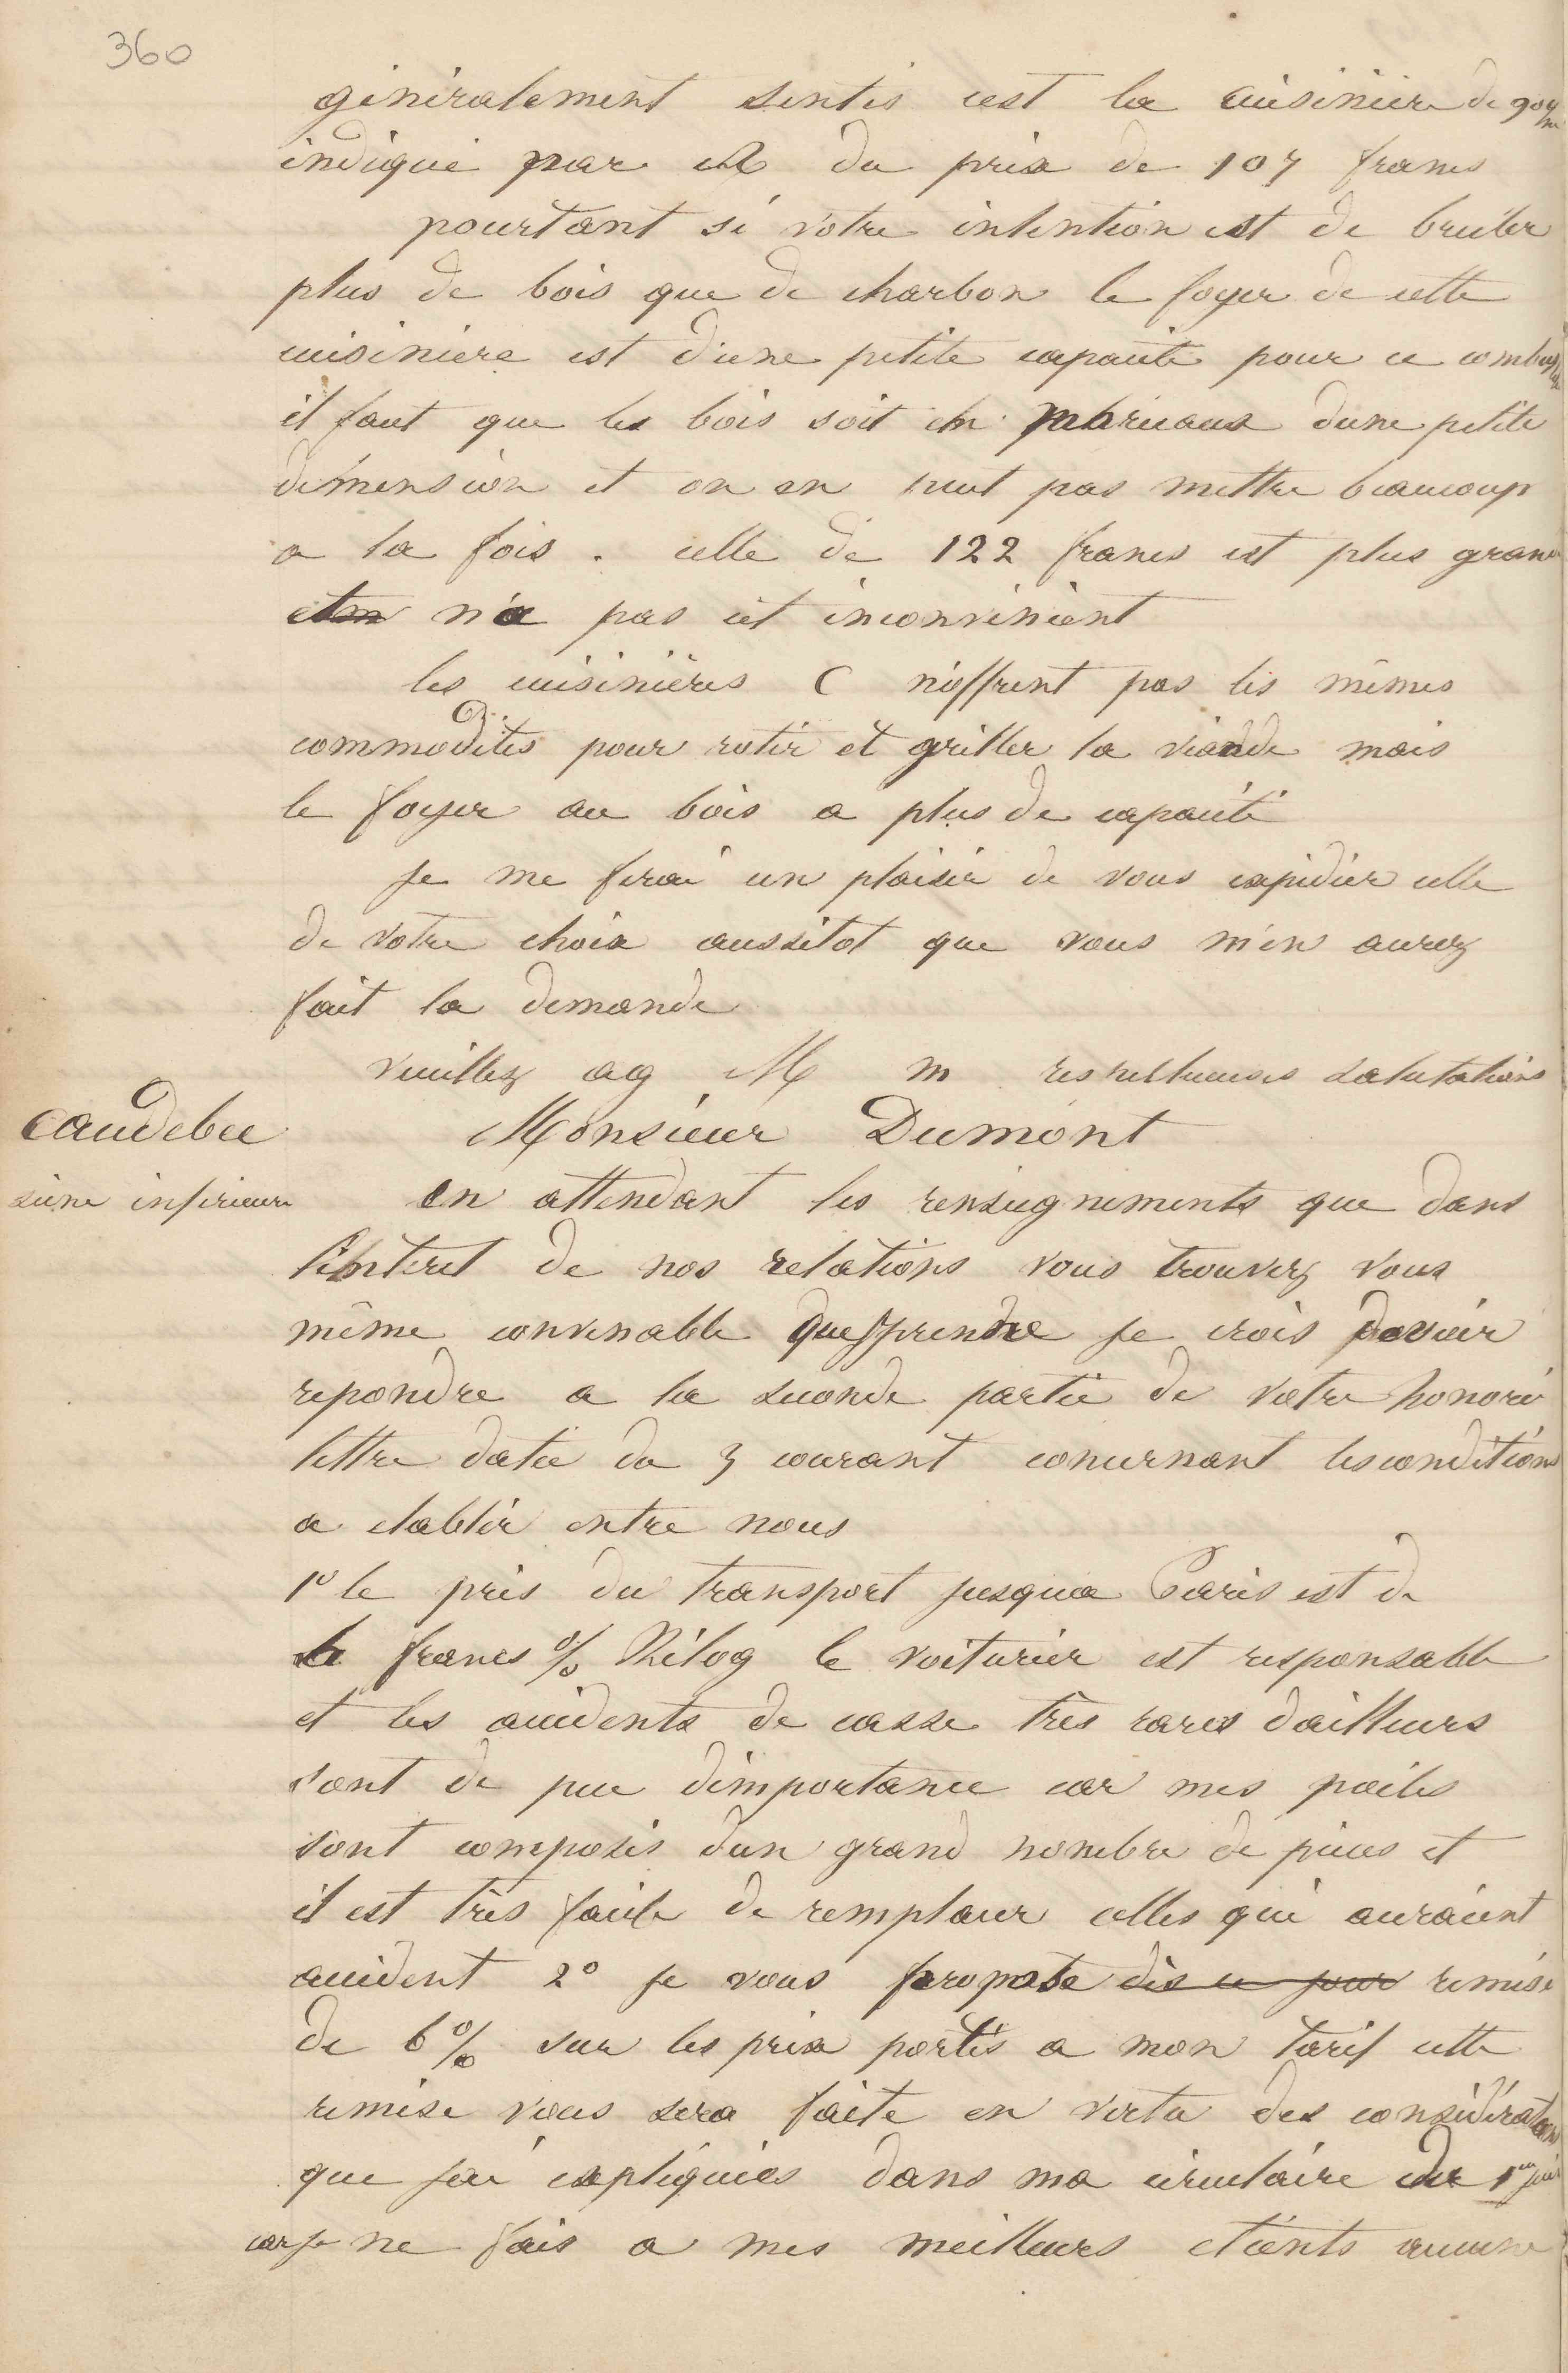 360
généralement sentis cest la cuisinière de 90 c/m
indiqué par A du prix de 107 francs
pourtant si votre intention est de bruler
plus de bois que de charbon le foyer de cette
cuisiniere est d'une petite capacité pour ce
il faut que les bois soit en morceaux dune petite
dimension et on en peut pas mettre beaucoup
a la fois . celle de 122 francs est plus grande
n'a pas cet inconvénient
les cuisinières C n'offrent pas les mêmes
commodités pour rotir et griller la viande mais
le foyer au bois a plus de capacité
je me ferai un plaisir de vous expédier celle
de votre choix aussitot que vous m'en aurez
fait la demande
veuillez ag M m respectueuses salutations
Caudebec
seine inférieure
Monsieur Dumont
en attendant les renseignements que dans
l'intéret de nos relations vous trouvez vous
même convenable que prendre je crois devoir
repondre a la seconde partie de votre honoré
lettre datée du 3 courant concernant les conditions
a etablir entre nous
1º le pris du transport jusqua Paris est de
francs % Kilog le voiturier est responsable
et les accidents de casse très rares d'ailleurs
sont de peu d'importance car mes poiles
sont composés dun grand nombre de pieces et
il est très facile de remplacer celles qui auraient
accident 2º je vous propose dès ce jour remise
de 6 % sur les prix portés a mon tarif cette
remise vous sera faite en vertu des considérations
que jai expliquées dans ma circulaire du 1er
car je ne fais a mes meilleurs clients aucune